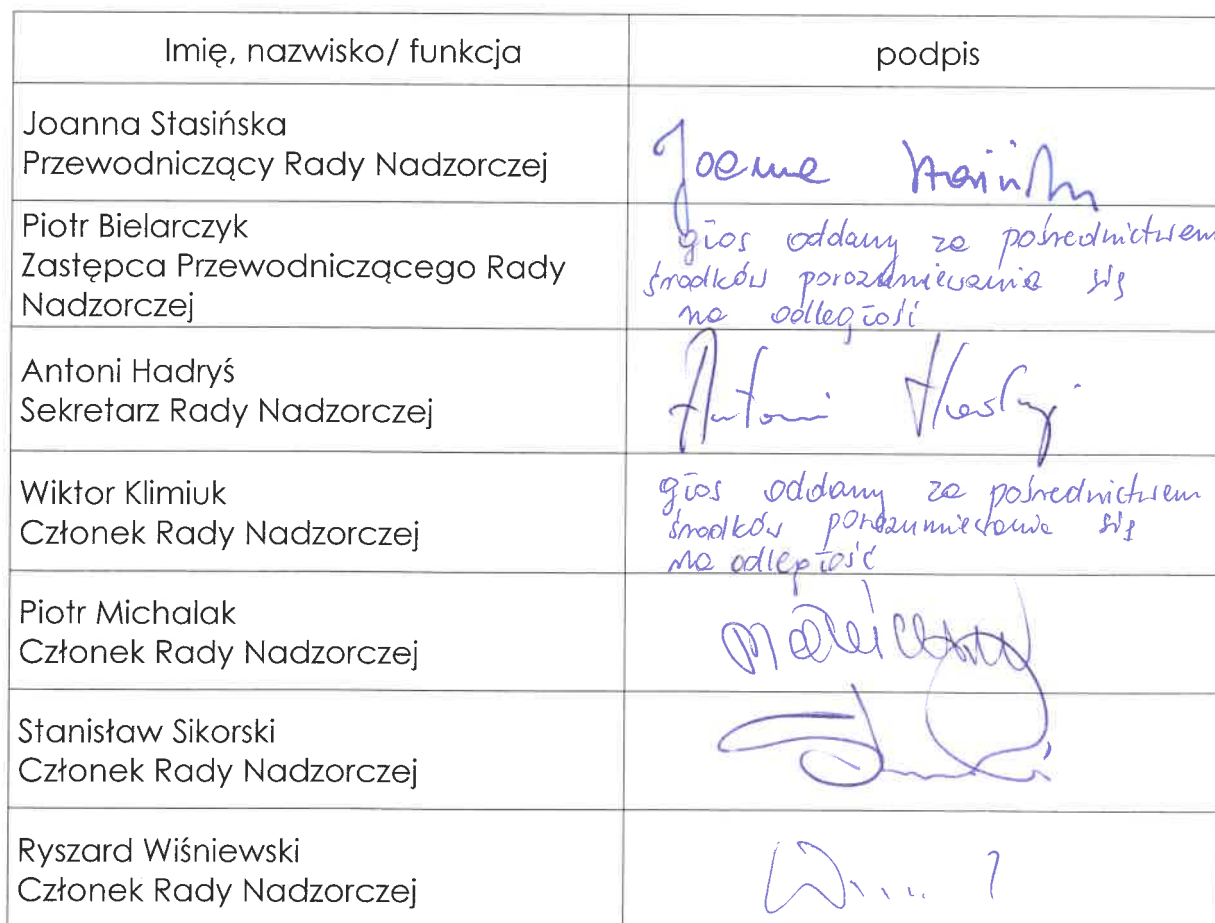 Imię, nazwisko/ funkcja
podpis
Joanna Stasińska
Przewodniczący Rady Nadzorczej
Piotr Bielarczyk
Zastępca Przewodniczącego Rady
Nadzorczej
głos oddany za pośrednictwem
środków porozumiewania się
na odległości
Antoni Hadryś
Sekretarz Rady Nadzorczej
Antoni
Wiktor Klimiuk
Członek Rady Nadzorczej
głos oddany za pośrednictwem
środków porozumiewania się
na odległość
Piotr Michalak
Członek Rady Nadzorczej
Stanisław Sikorski
Członek Rady Nadzorczej
Ryszard Wiśniewski
Członek Rady Nadzorczej